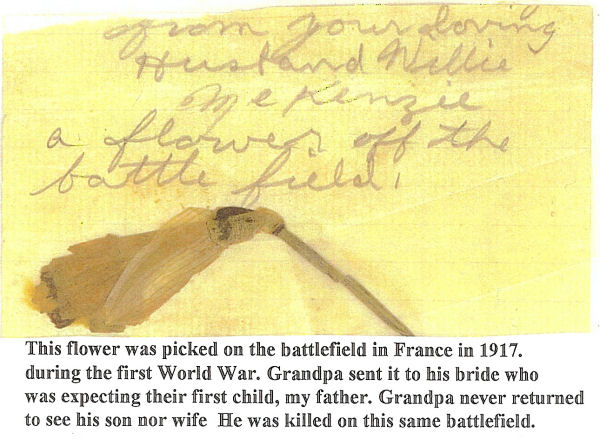 from your loving
Husband Willie
McKenzie
a flower off the
battle field.
This flower was picked on the battlefield in France in 1917.
during the first World War. Grandpa sent it to his bride who
was expecting their first child, my father. Grandpa never returned
to see his son nor wife He was killed on this same battlefield.